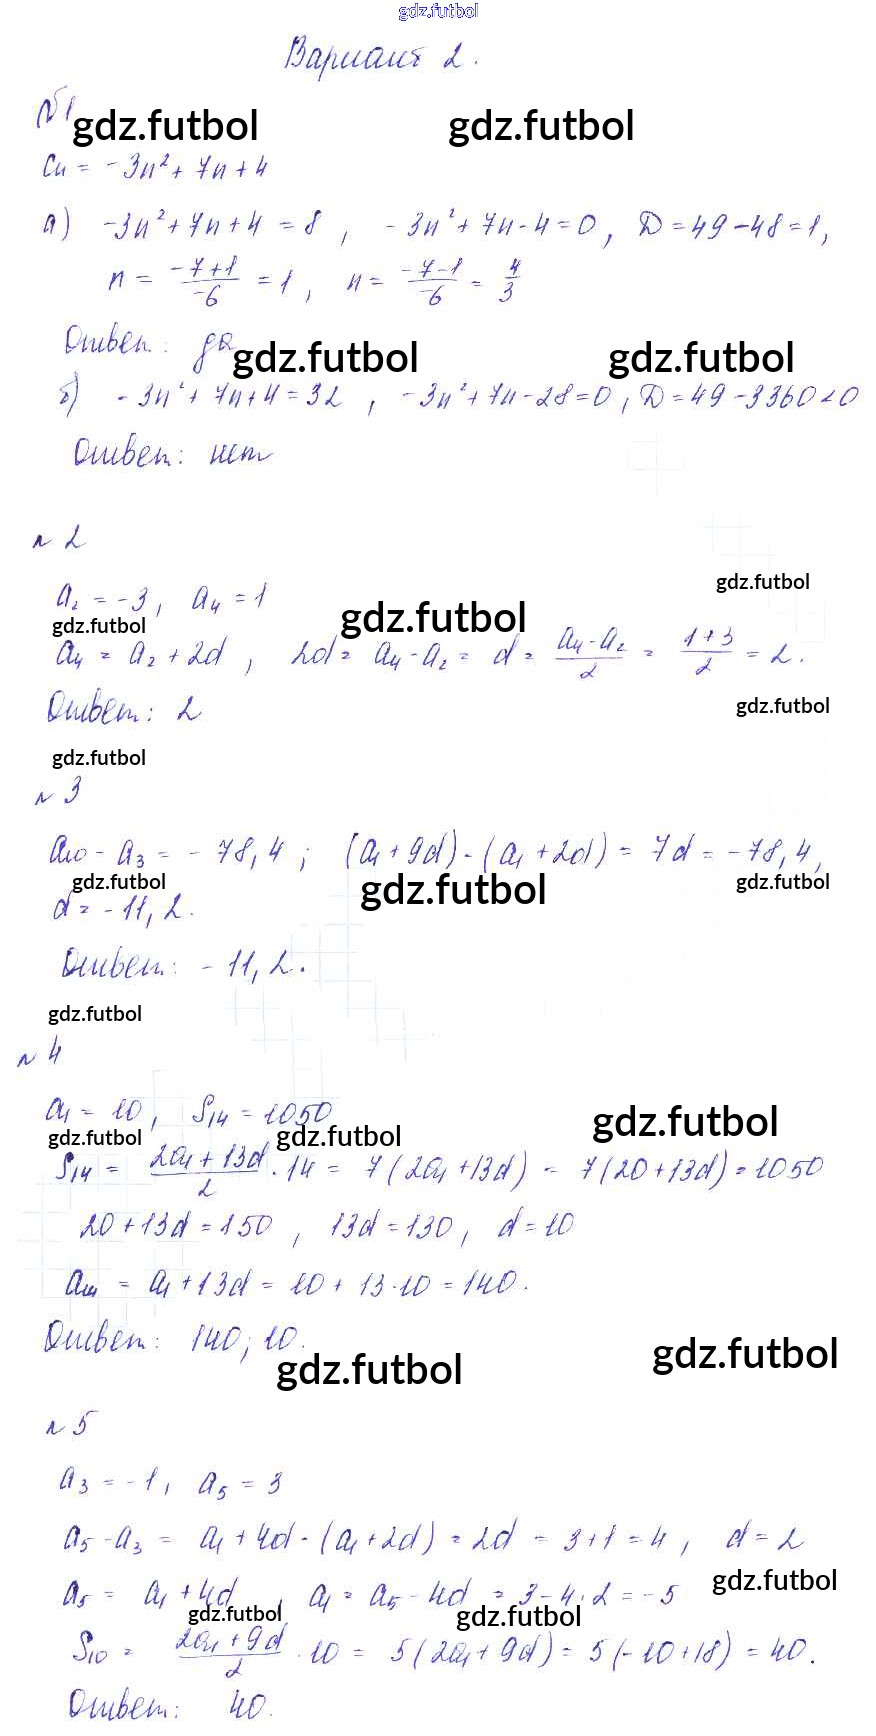 gdz.futbol
Вариант 2.
№1
gdz.futbol gdz.futbol
Cn = -3n² + 7n + 4
а) -3n² + 7n + 4 = 8, -3n² + 7n - 4 = 0, D = 49 - 48 = 1,
n = (-7+1)/(-6) = 1, n = (-7-1)/(-6) = 4/3
Ответ: да
gdz.futbol gdz.futbol
б) -3n² + 7n + 4 = 32, -3n² + 7n - 28 = 0, D = 49 - 3360 < 0
Ответ: нет
№ 2
gdz.futbol
a₂ = -3, a₄ = 1
gdz.futbol gdz.futbol
a₄ = a₂ + 2d, 2d = a₄ - a₂ = d = (a₄ - a₂)/2 = (1+3)/2 = 2.
Ответ: 2
gdz.futbol
gdz.futbol
№ 3
a₁₀ - a₃ = -78,4; (a₁ + 9d) - (a₁ + 2d) = 7d = -78,4,
gdz.futbol gdz.futbol gdz.futbol
d = -11,2.
Ответ: -11,2.
gdz.futbol
№ 4
a₁ = 10, S₁₄ = 1050
gdz.futbol gdz.futbol gdz.futbol
S₁₄ = (2a₁ + 13d)/2 · 14 = 7(2a₁ + 13d) = 7(20 + 13d) = 1050
20 + 13d = 150, 13d = 130, d = 10
a₁₄ = a₁ + 13d = 10 + 13·10 = 140.
Ответ: 140; 10.
gdz.futbol gdz.futbol
№ 5
a₃ = -1, a₅ = 3
a₅ - a₃ = a₁ + 4d - (a₁ + 2d) = 2d = 3 + 1 = 4, d = 2
a₅ = a₁ + 4d, a₁ = a₅ - 4d = 3 - 4·2 = -5
gdz.futbol gdz.futbol gdz.futbol
S₁₀ = (2a₁ + 9d)/2 · 10 = 5(2a₁ + 9d) = 5(-10 + 18) = 40.
Ответ: 40.